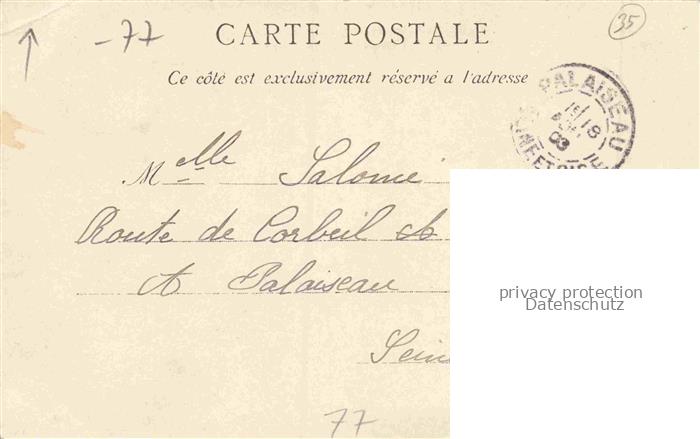 35
-77
CARTE POSTALE
Ce côté est exclusivement réservé a l'adresse
PALAISEAU
18
03
Melle Salomé
Route de Corbeil
A Palaiseau
privacy protection
Datenschutz
Sein
77